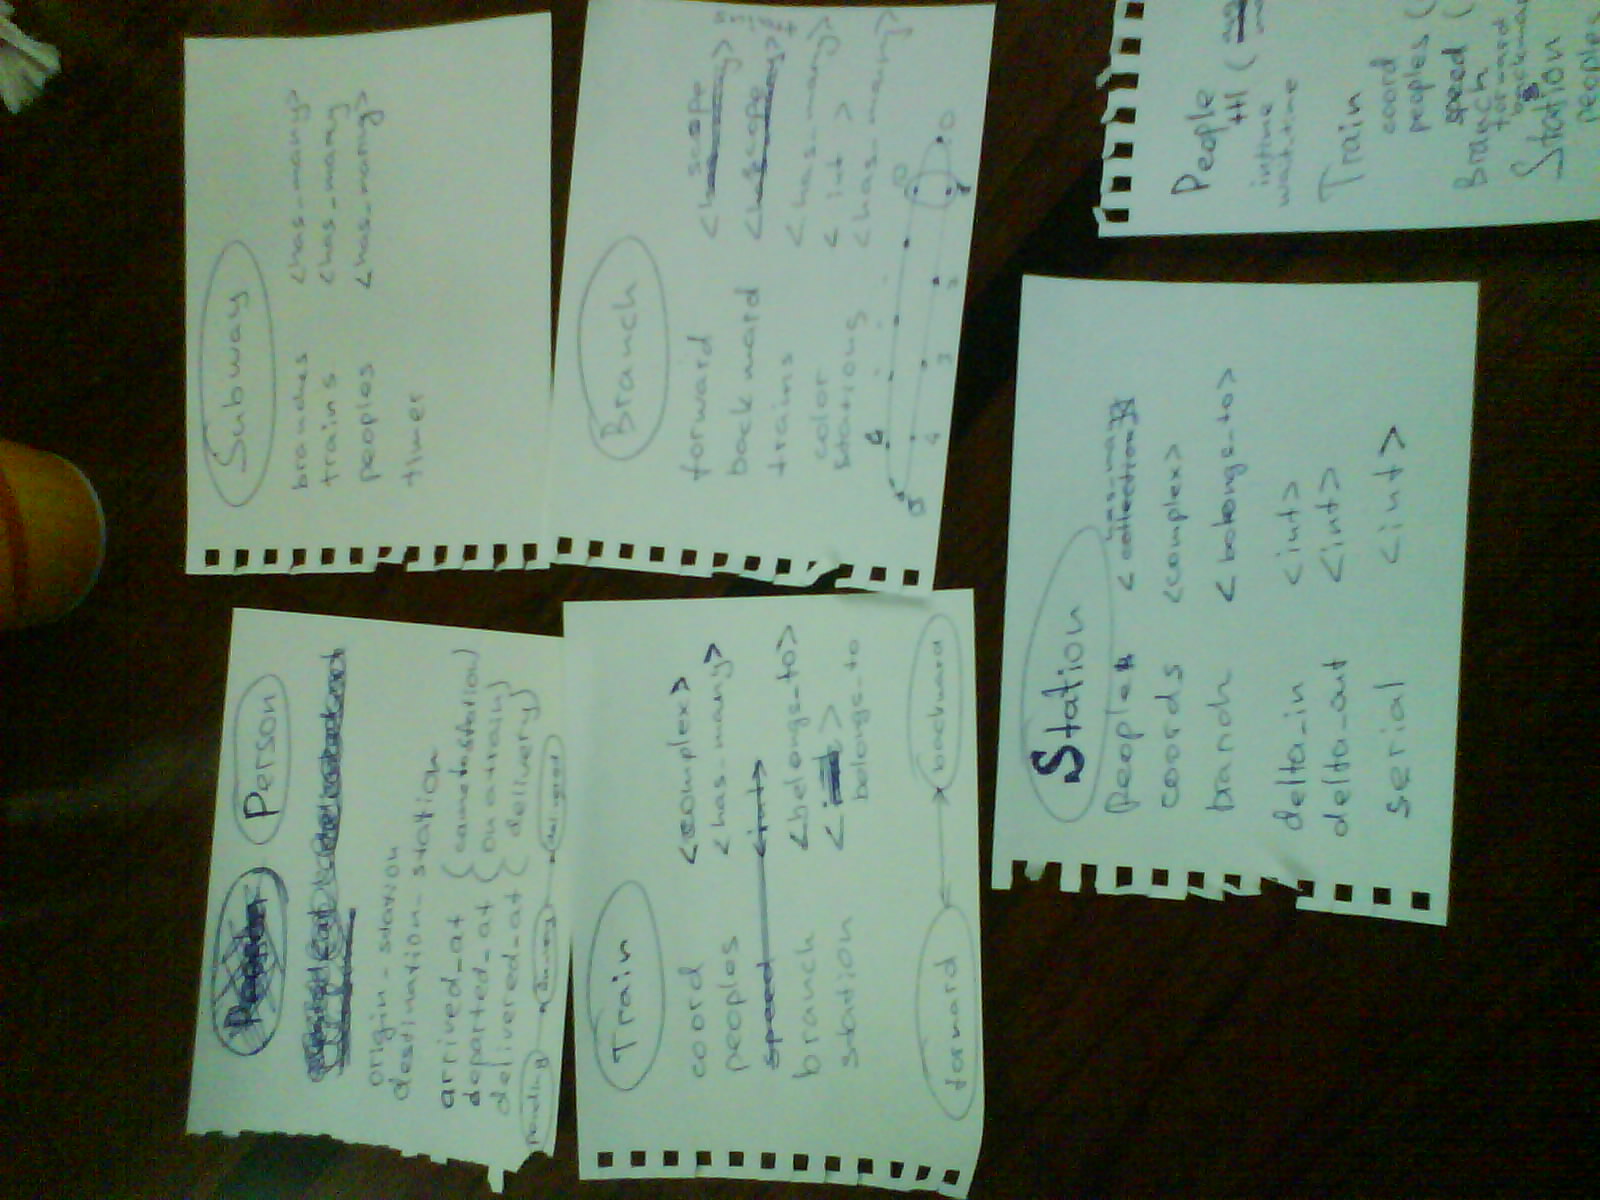 Person
origin_station
destination_station
arrived_at (cametostation)
departed_at (on a train)
delivered_at (delivery)
pending
delivered
Subway
branches <has_many>
trains <has_many
peoples <has_many>
timer
Train
coord <complex>
peoples <has_many>
speed <int>
branch <belongs_to>
station < >
belongs_to
forward backward
Branch
forward < scope >
backward < scope >
trains
trains <has_many>
color < int >
stations <has_many>
4 3
Station
People < has_many
collection
coords <complex>
branch <belongs_to>
delta_in <int>
delta_out <int>
serial <int>
People
ttl (
intime
wait-time
Train
coord
peoples (
speed (
Branch
forward
backwar
Station
peoples